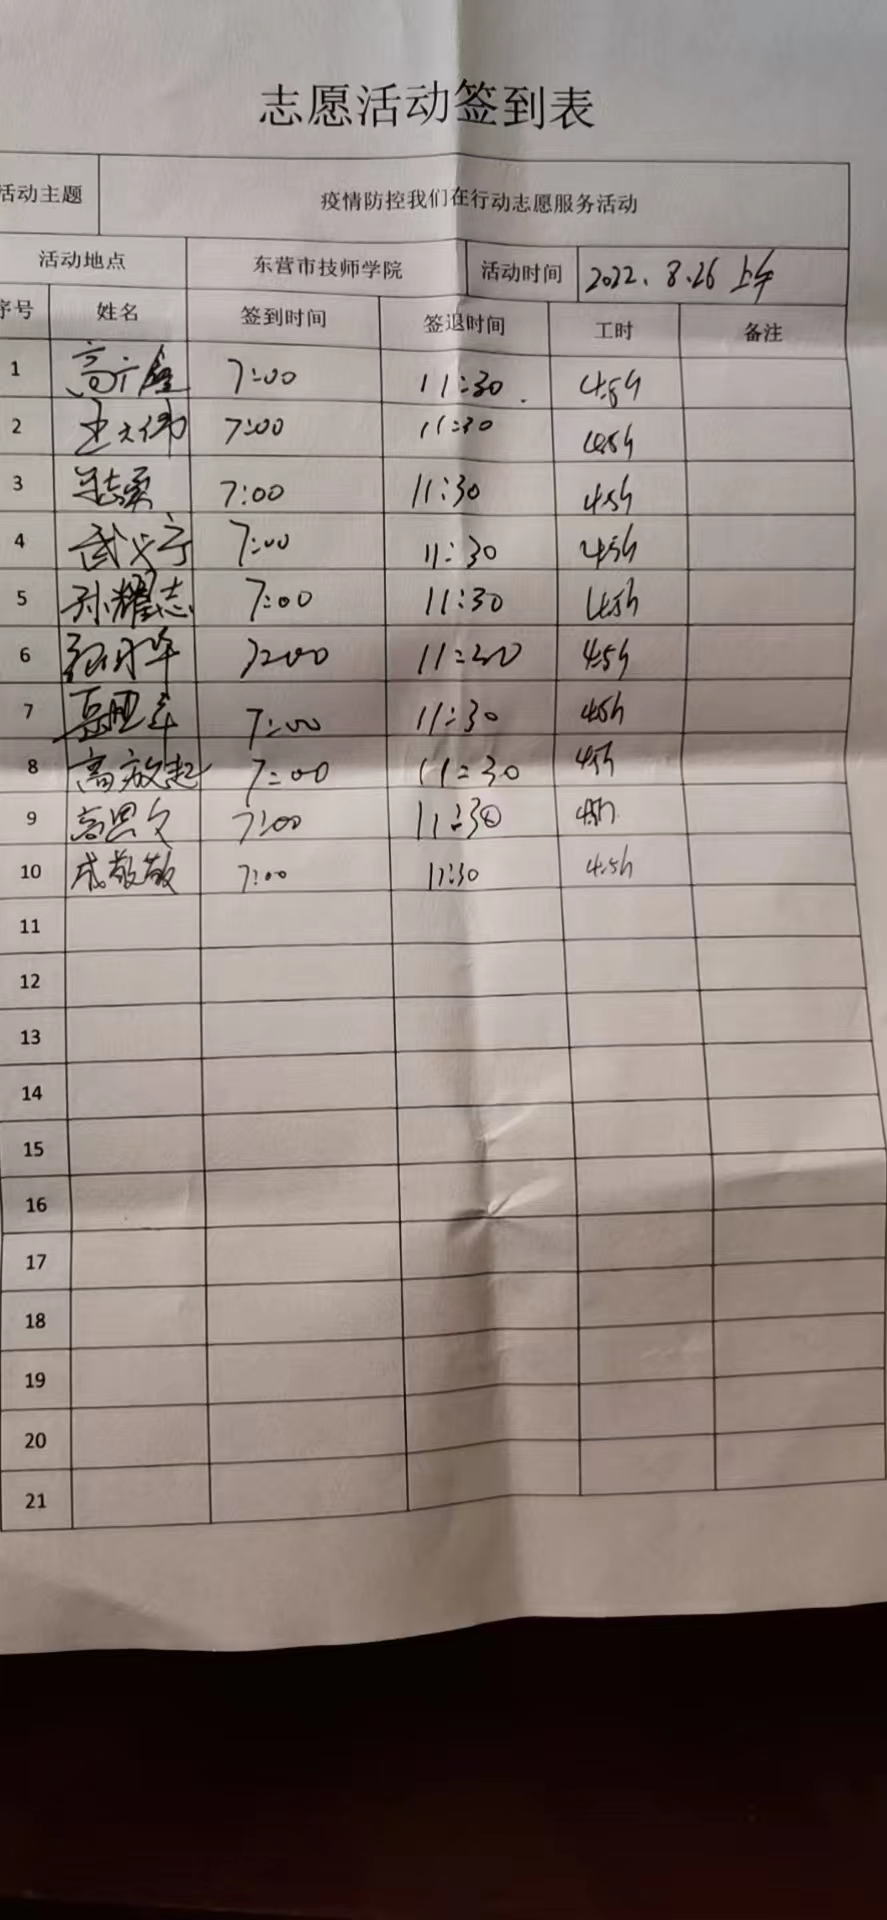 志愿活动签到表
活动主题 疫情防控我们在行动志愿服务活动
活动地点 东营市技师学院 活动时间 2022.8.26 上午
序号 姓名 签到时间 签退时间 工时 备注
1 高广鑫 7:00 11:30 4.5h
2 王大伟 7:00 11:30 4.5h
3 志勇 7:00 11:30 4.5h
4 武 宁 7:00 11:30 4.5h
5 孙耀志 7:00 11:30 4.5h
6 7:00 11:30 4.5h
7 7:00 11:30 4.5h
8 高效起 7:00 11:30 4.5h
9 高思文 7:00 11:30 4.5h
10 成敬敏 7:00 11:30 4.5h
11
12
13
14
15
16
17
18
19
20
21